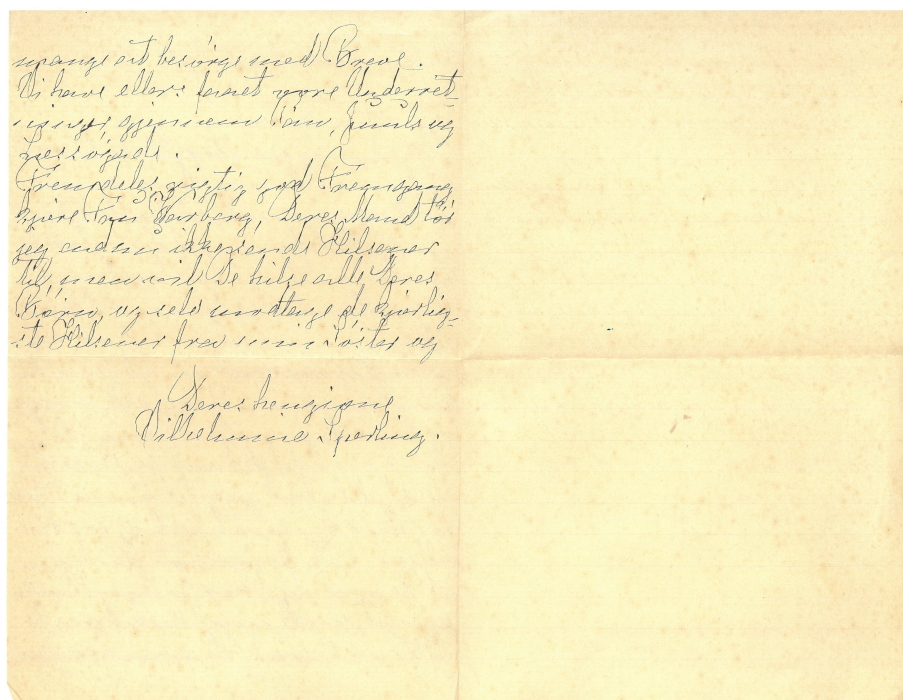 mange at besörge med Breve.
Vi have ellers faaet vore Underret-
ninger gjennem og
Fremdeles rigtig god Fremgang
kjære Fru Deres Mand tör
jeg endnu ikke sende Hilsener
til, men vil De hilse alle Deres
Börn, og selv modtage de kjærlig-
ste Hilsener fra min Söster og
Deres hengivne
Vilhelmine Sperling.